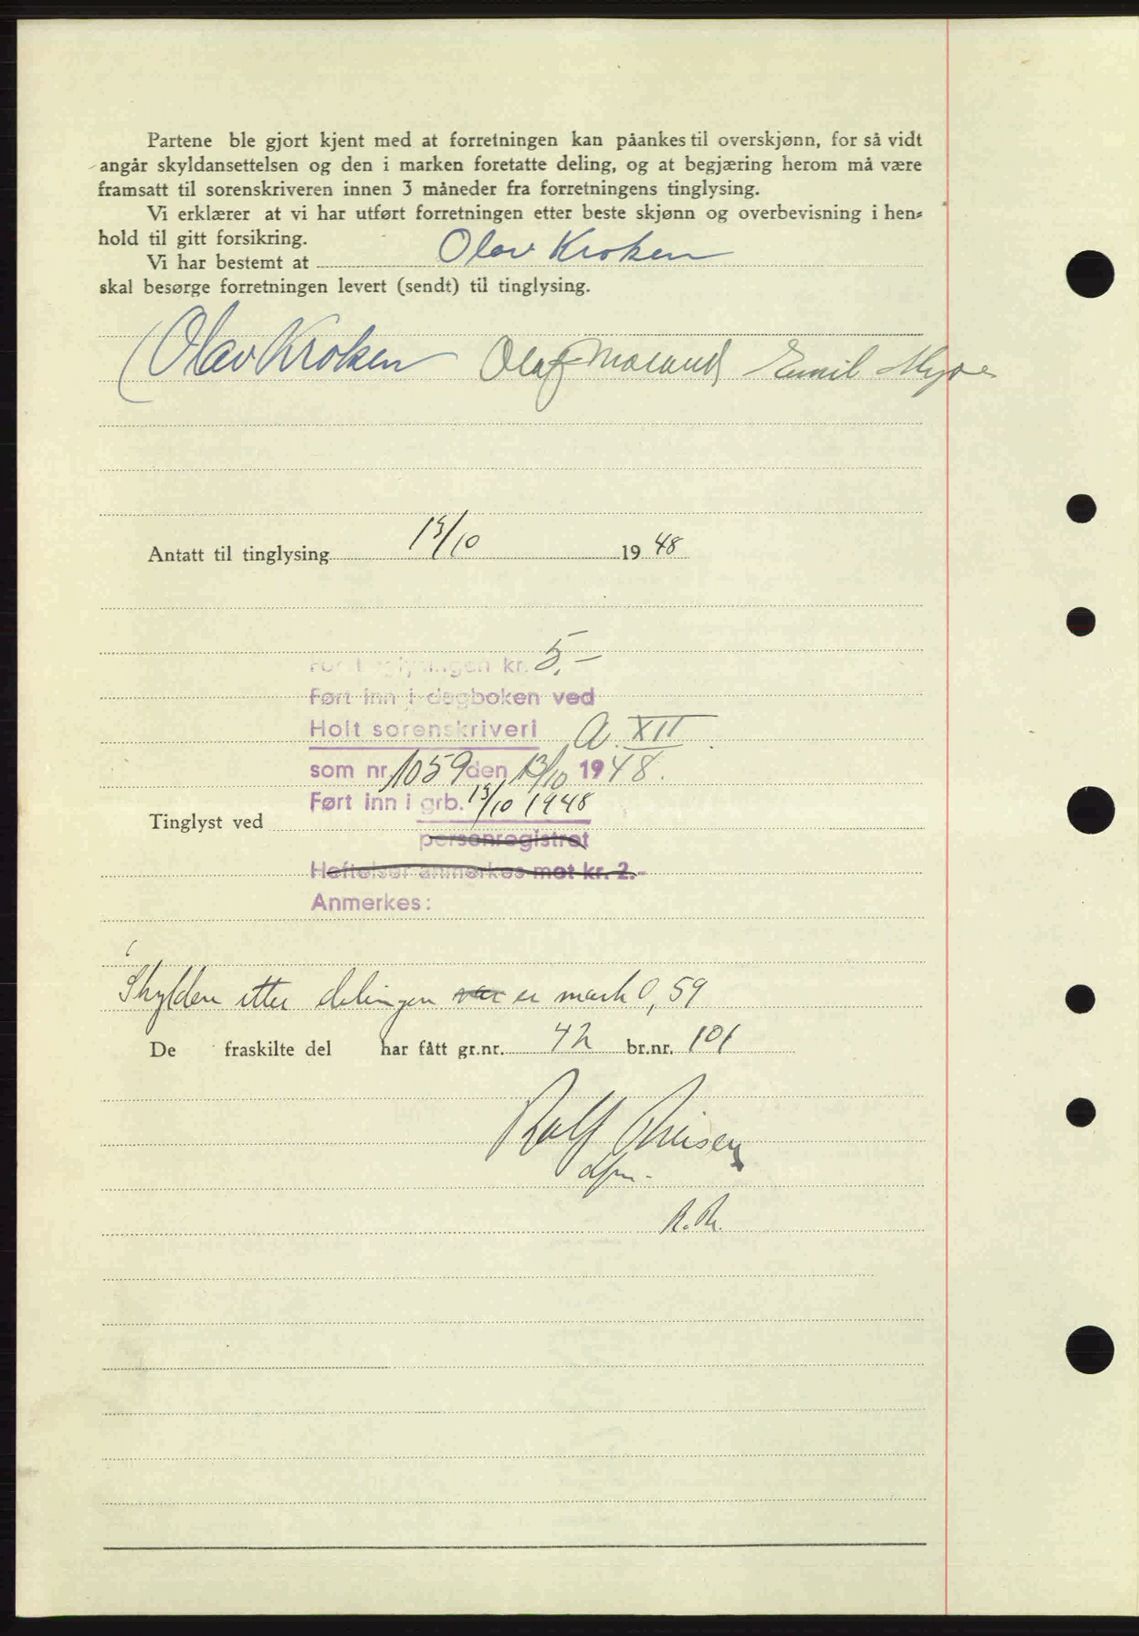 Partene ble gjort kjent med at forretningen kan påankes til overskjønn, for så vidt
angår skyldansettelsen og den i marken foretatte deling, og at begjæring herom må være
framsatt til sorenskriveren innen 3 måneder fra forretningens tinglysing.
Vi erklærer at vi har utført forretningen etter beste skjønn og overbevisning i hen-
hold til gitt forsikring.
Vi har bestemt at Olav Kroken
skal besørge forretningen levert (sendt) til tinglysing.
Olav Kroken Olaf Emil
Antatt til tinglysing 13/10 1948
For tinglysingen kr. 5,-
Ført inn i dagboken ved
Holt sorenskriveri A XII
som nr 1059 den 13/10 1948.
Ført inn i grb. 13/10 1948
Tinglyst ved
personregistret
Heftelser anmerkes mot kr. 2.-
Anmerkes:
Skylden etter delingen var er mark 0,59
De fraskilte del har fått gr.nr. 42 br.nr. 101
Rolf